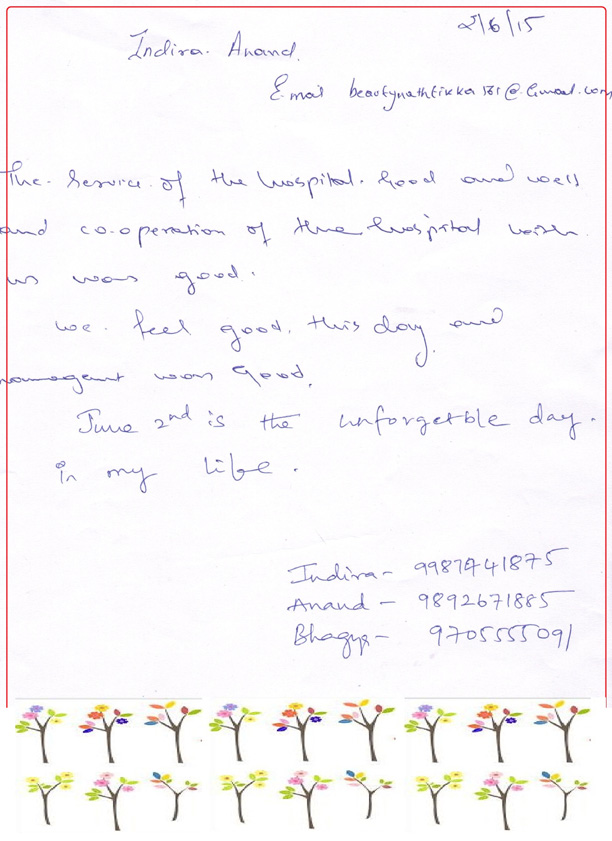 2/6/15
Indira. Anand.
Email beautynathtikka181@Gmail.com
The. Service. of the hospital. Good and well
and co-operation of the hospital with
us was good.
we. feel good. this day and
was Good.
June 2nd is the unforgetble day.
in my life.
Indira - 9987741875
Anand - 9892671885
Bhagya - 9705555091